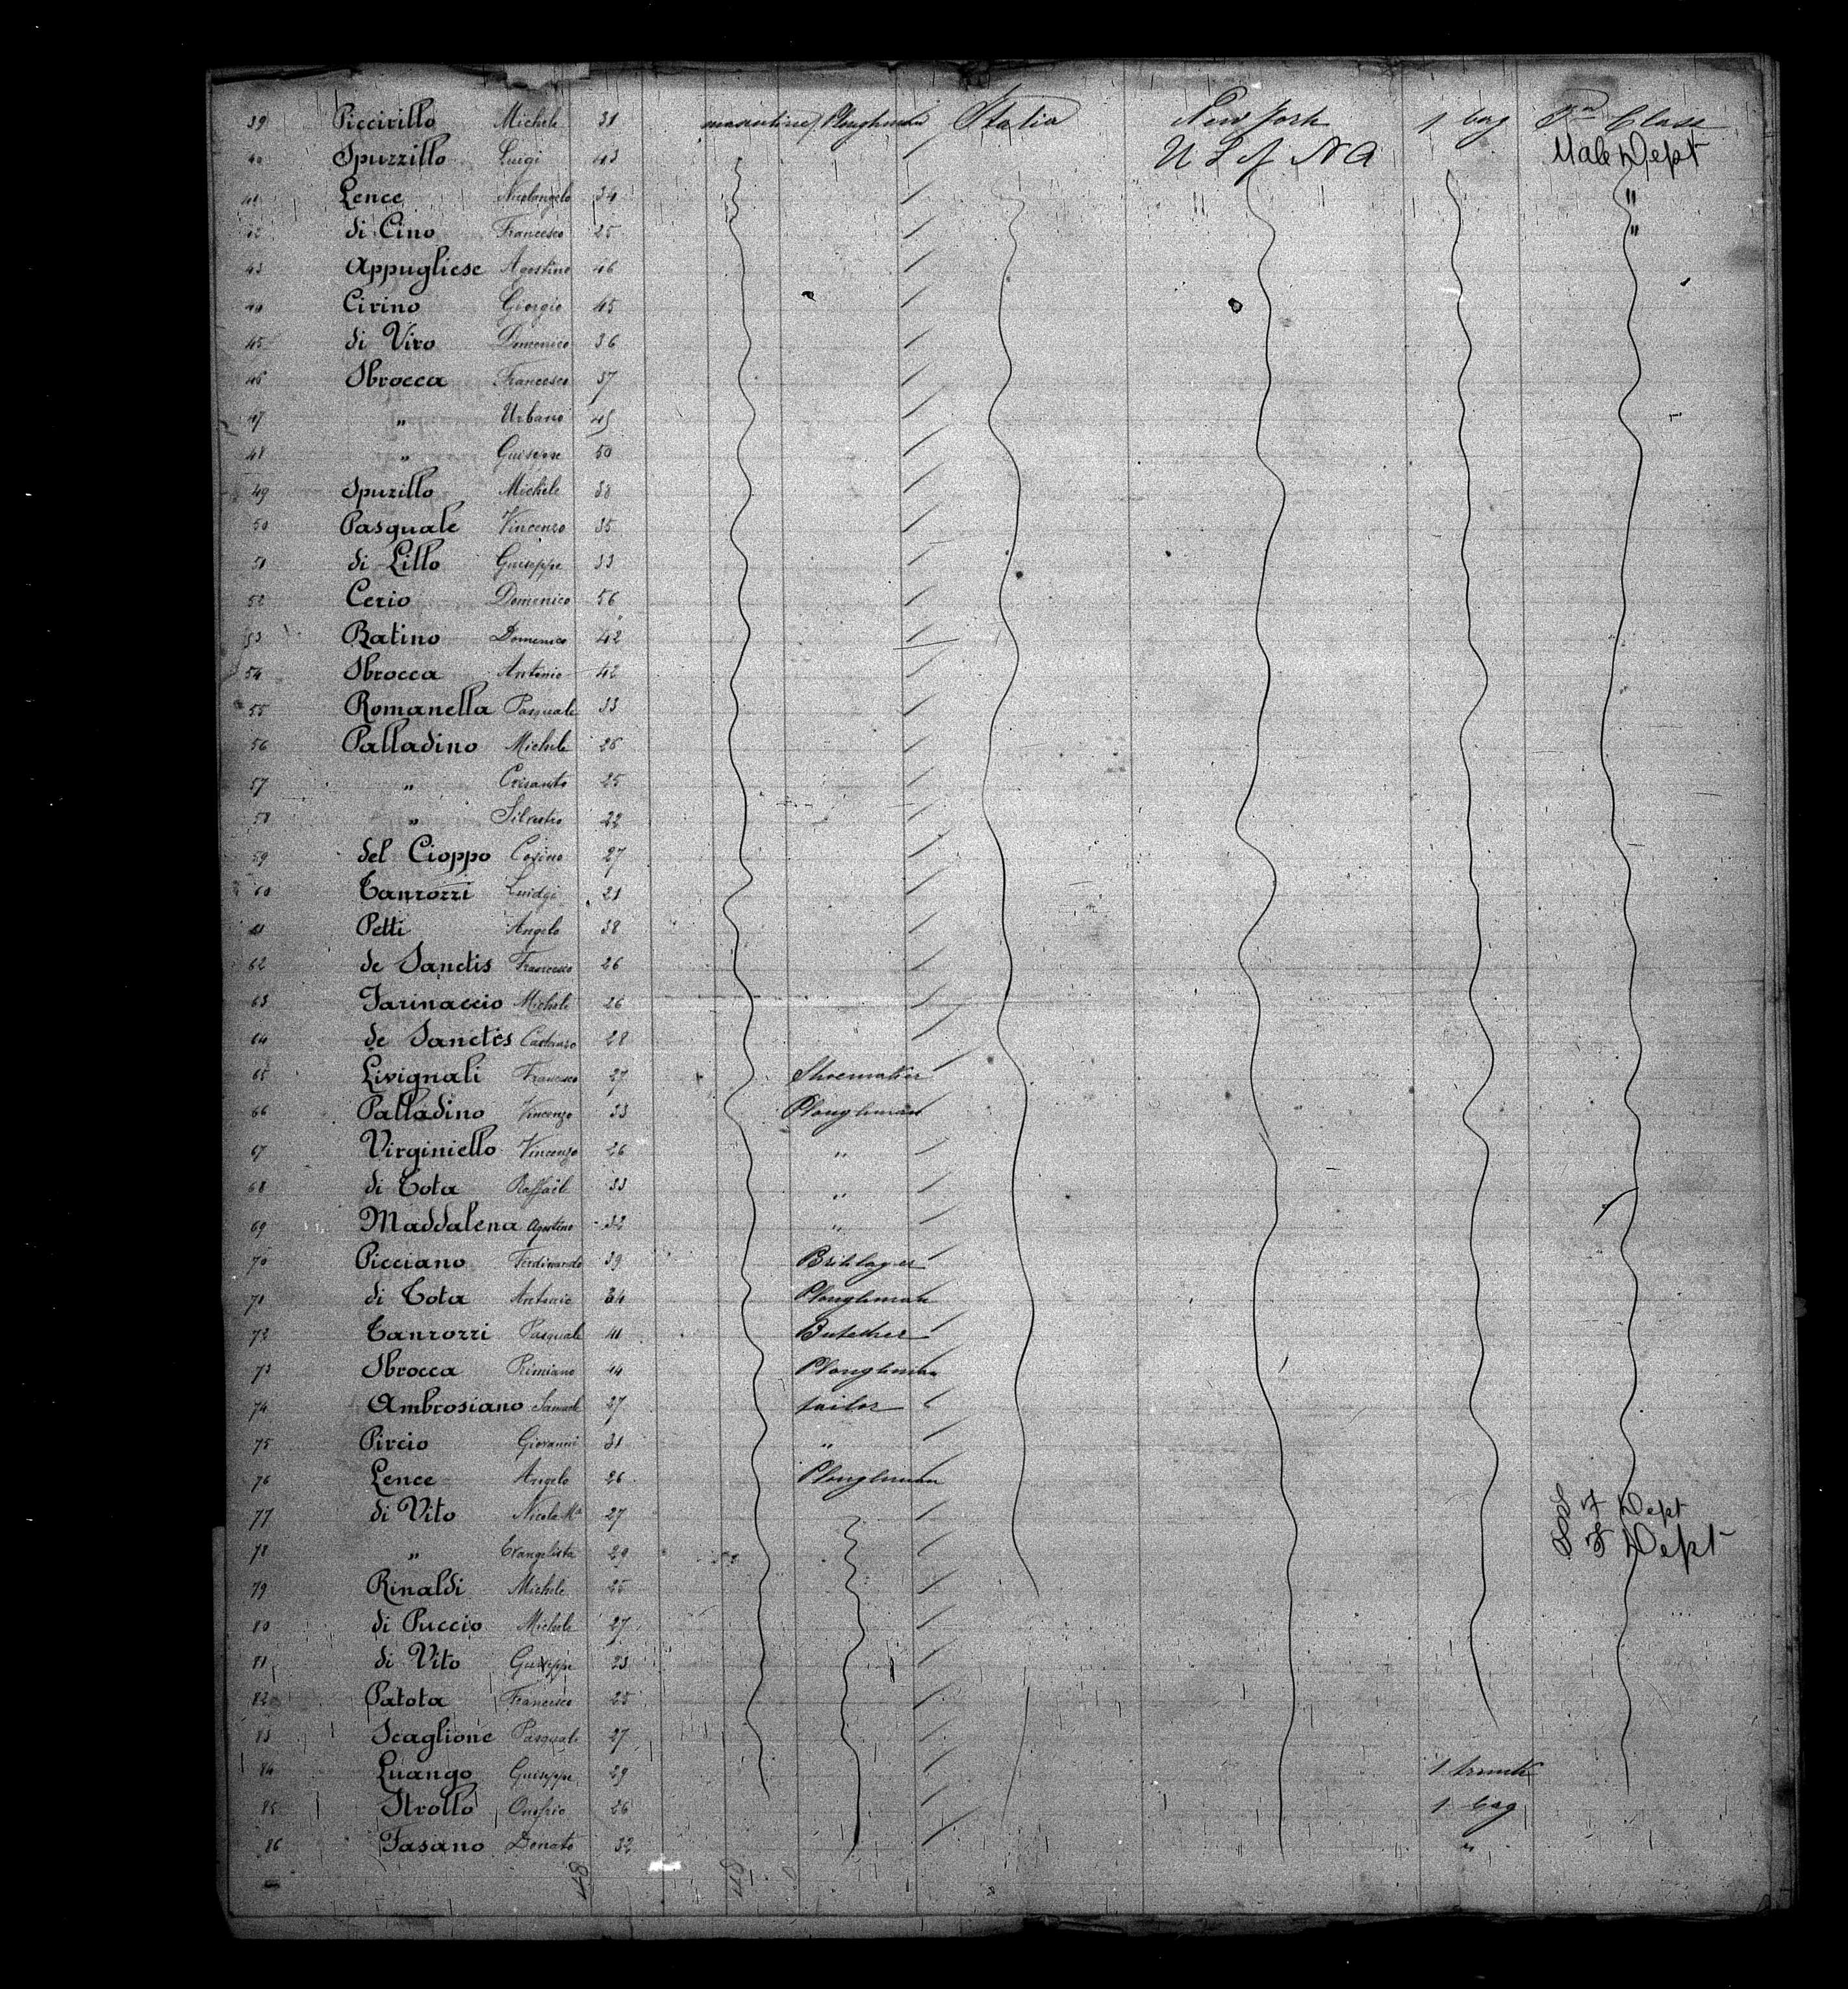 39 Piccirillo Michele 31 masculine Ploughman Italia New York 1 bag 3rd Class
40 Spuzzillo Luigi 43 U S of N A Male Dept
41 Lence Micelangelo 34 "
42 di Cino Francesco 25 "
43 Appugliese Agostino 46
44 Cirino Giorgio 45
45 di Viro Domenico 36
46 Sbrocca Francesco 37
47 " Urbano 45
48 " Guiseppe 50
49 Spuzillo Michele 38
50 Pasquale Vincenzo 35
51 di Lillo Guiseppe 33
52 Cerio Domenico 56
53 Ratino Domenico 42
54 Sbrocca Antonio 42
55 Romanella Pasquale 33
56 Palladino Michele 26
57 " Crisanto 25
58 " Silvestro 22
59 del Cioppo Cosino 27
60 Tanzozzi Luidgi 21
61 Petti Angelo 38
62 de Sanctis Francesco 26
63 Farinaccio Michele 26
64 de Sanctis 28
65 Livignali Francesco 27 Shoemaker
66 Palladino Vincenzo 33 Ploughman
67 Virginiello Vincenzo 26 "
68 di Tota Raffaele 33 "
69 Maddalena Agostino 32 "
70 Picciano Ferdinando 39 Briklager
71 di Tota Antonio 34 Ploughman
72 Tanzozzi Pasquale 41 Butcher
73 Sbrocca Primiano 44 Ploughman
74 Ambrosiano Samuele 27 tailor
75 Pircio Giovanni 31 "
76 Lence Angelo 26 Ploughman
77 di Vito Nicola Ma 27 S F Dept
78 " Evangelista 29 S F Dept
79 Rinaldi Michele 25
80 di Puccio Michele 27
81 di Vito Guiseppe 23
82 Patota Francesco 25
83 Scaglione Pasquale 27
84 Luango Guiseppe 29 1 trunk
85 Strollo Onofrio 26 1 bag
86 Fasano Donato 32 "
48 48